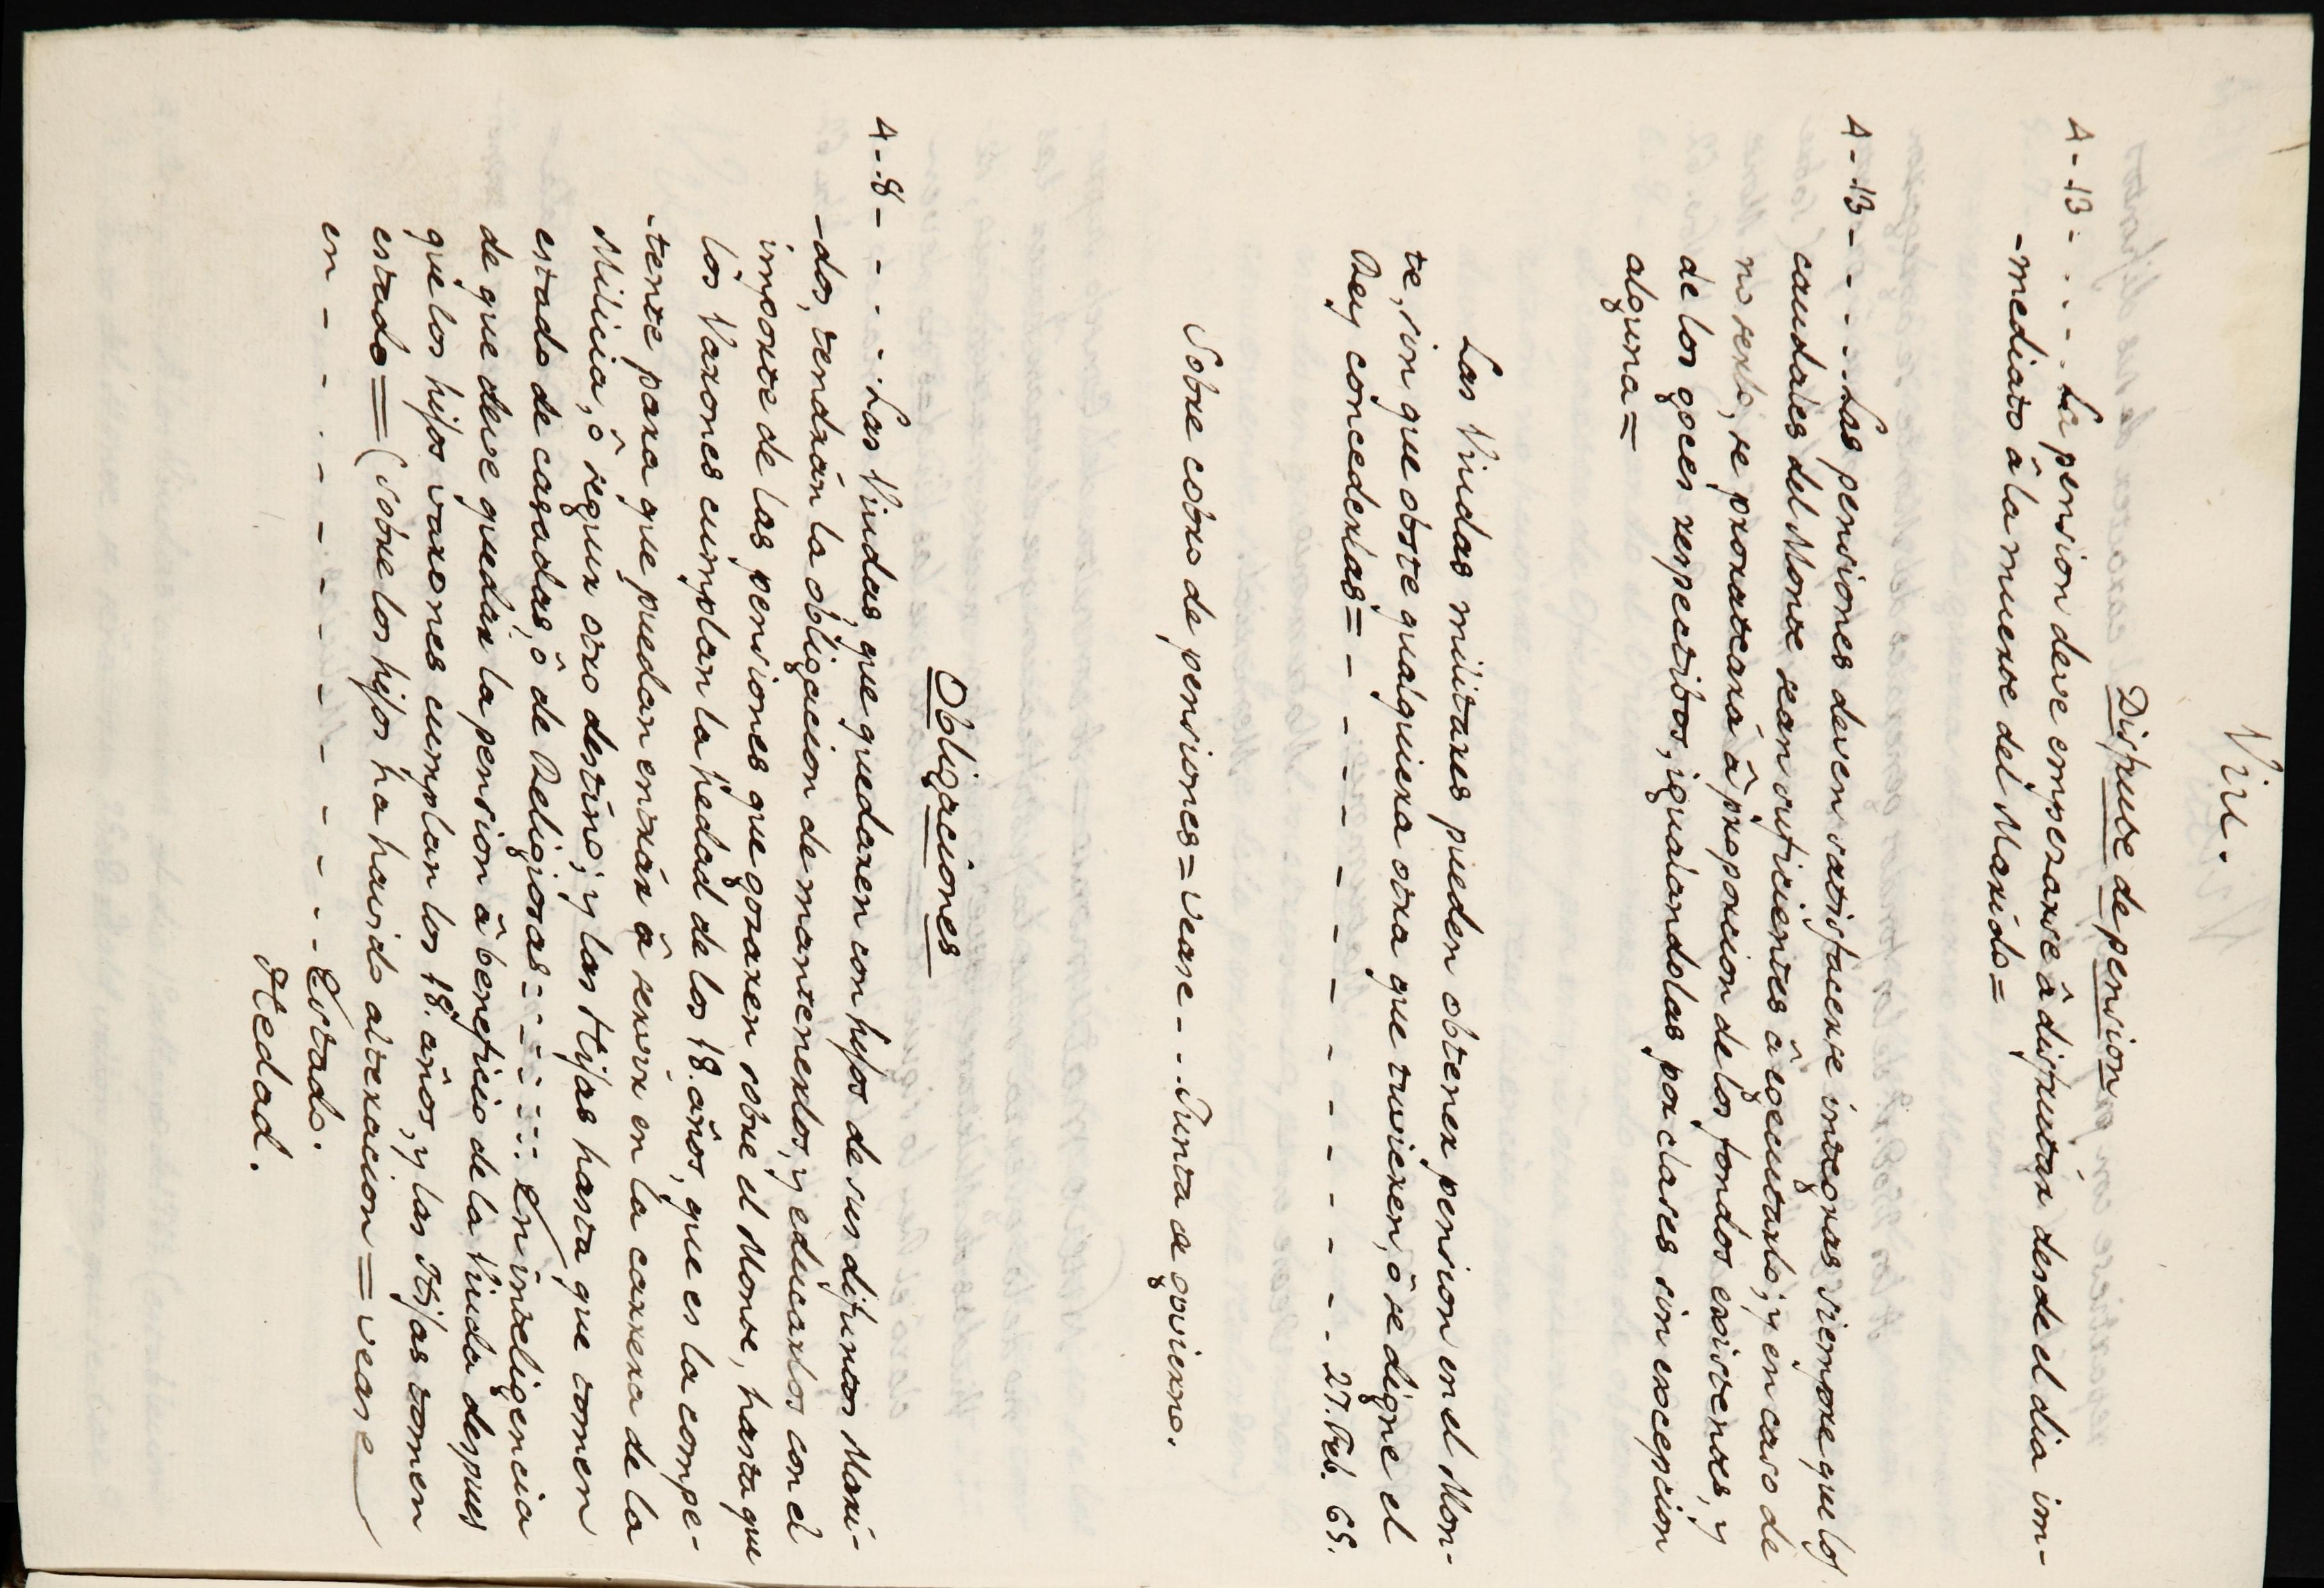 Viu.
Disfrute de pension
4-13- . . - . La pension deve empesarse â disfrutár desde el dia im-
-mediato â la muerte del Marido=
4-13- - - . . Las pensiones deven satisfacerse integras siempre que los
caudales del Monte sean suficientes â egecutarlo; y en caso de
no serlo, se prorrateará â proporcion de los fondos existentes, y
de los goces respectibos, igualandolas por clases sin excepcion
alguna=
Las Viudas militares pueden obtener pension en el Mon-
te, sin que obste qualquiera otra que tuvieren, ô se digne el
Rey concederlas= - - - - - - - - - - - - - 27. Feb. 65.
Sobre cobro de pensiones=vease - . . Junta a govierno.
Obligaciones
4-.8- - - . - . Las Viudas, que quedaren con hijos de sus difuntos Mari-
-dos, tendrán la obligacion de mantenerlos, y educarlos con el
importe de las pensiones que gozaren sobre el Monte, hasta que
los Varones cumplan la hedad de los 18. años, que es la compe-
-tente para que puedan entrár â servir en la carrera de la
Milicia, ô seguir otro destino; y las Hijas hasta que tomen
estado de casadas, ô de Religiosas= - - - - - - En inteligencia
de que deve quedar la pension â beneficio de la Viuda despues
que los hijos varones cumplan los 18. años, y las Hijas tomen
estado = (sobre los hijos ha havido alteracion = vease
en - - - . - - - - - - - - - - Estado.
Hedad.